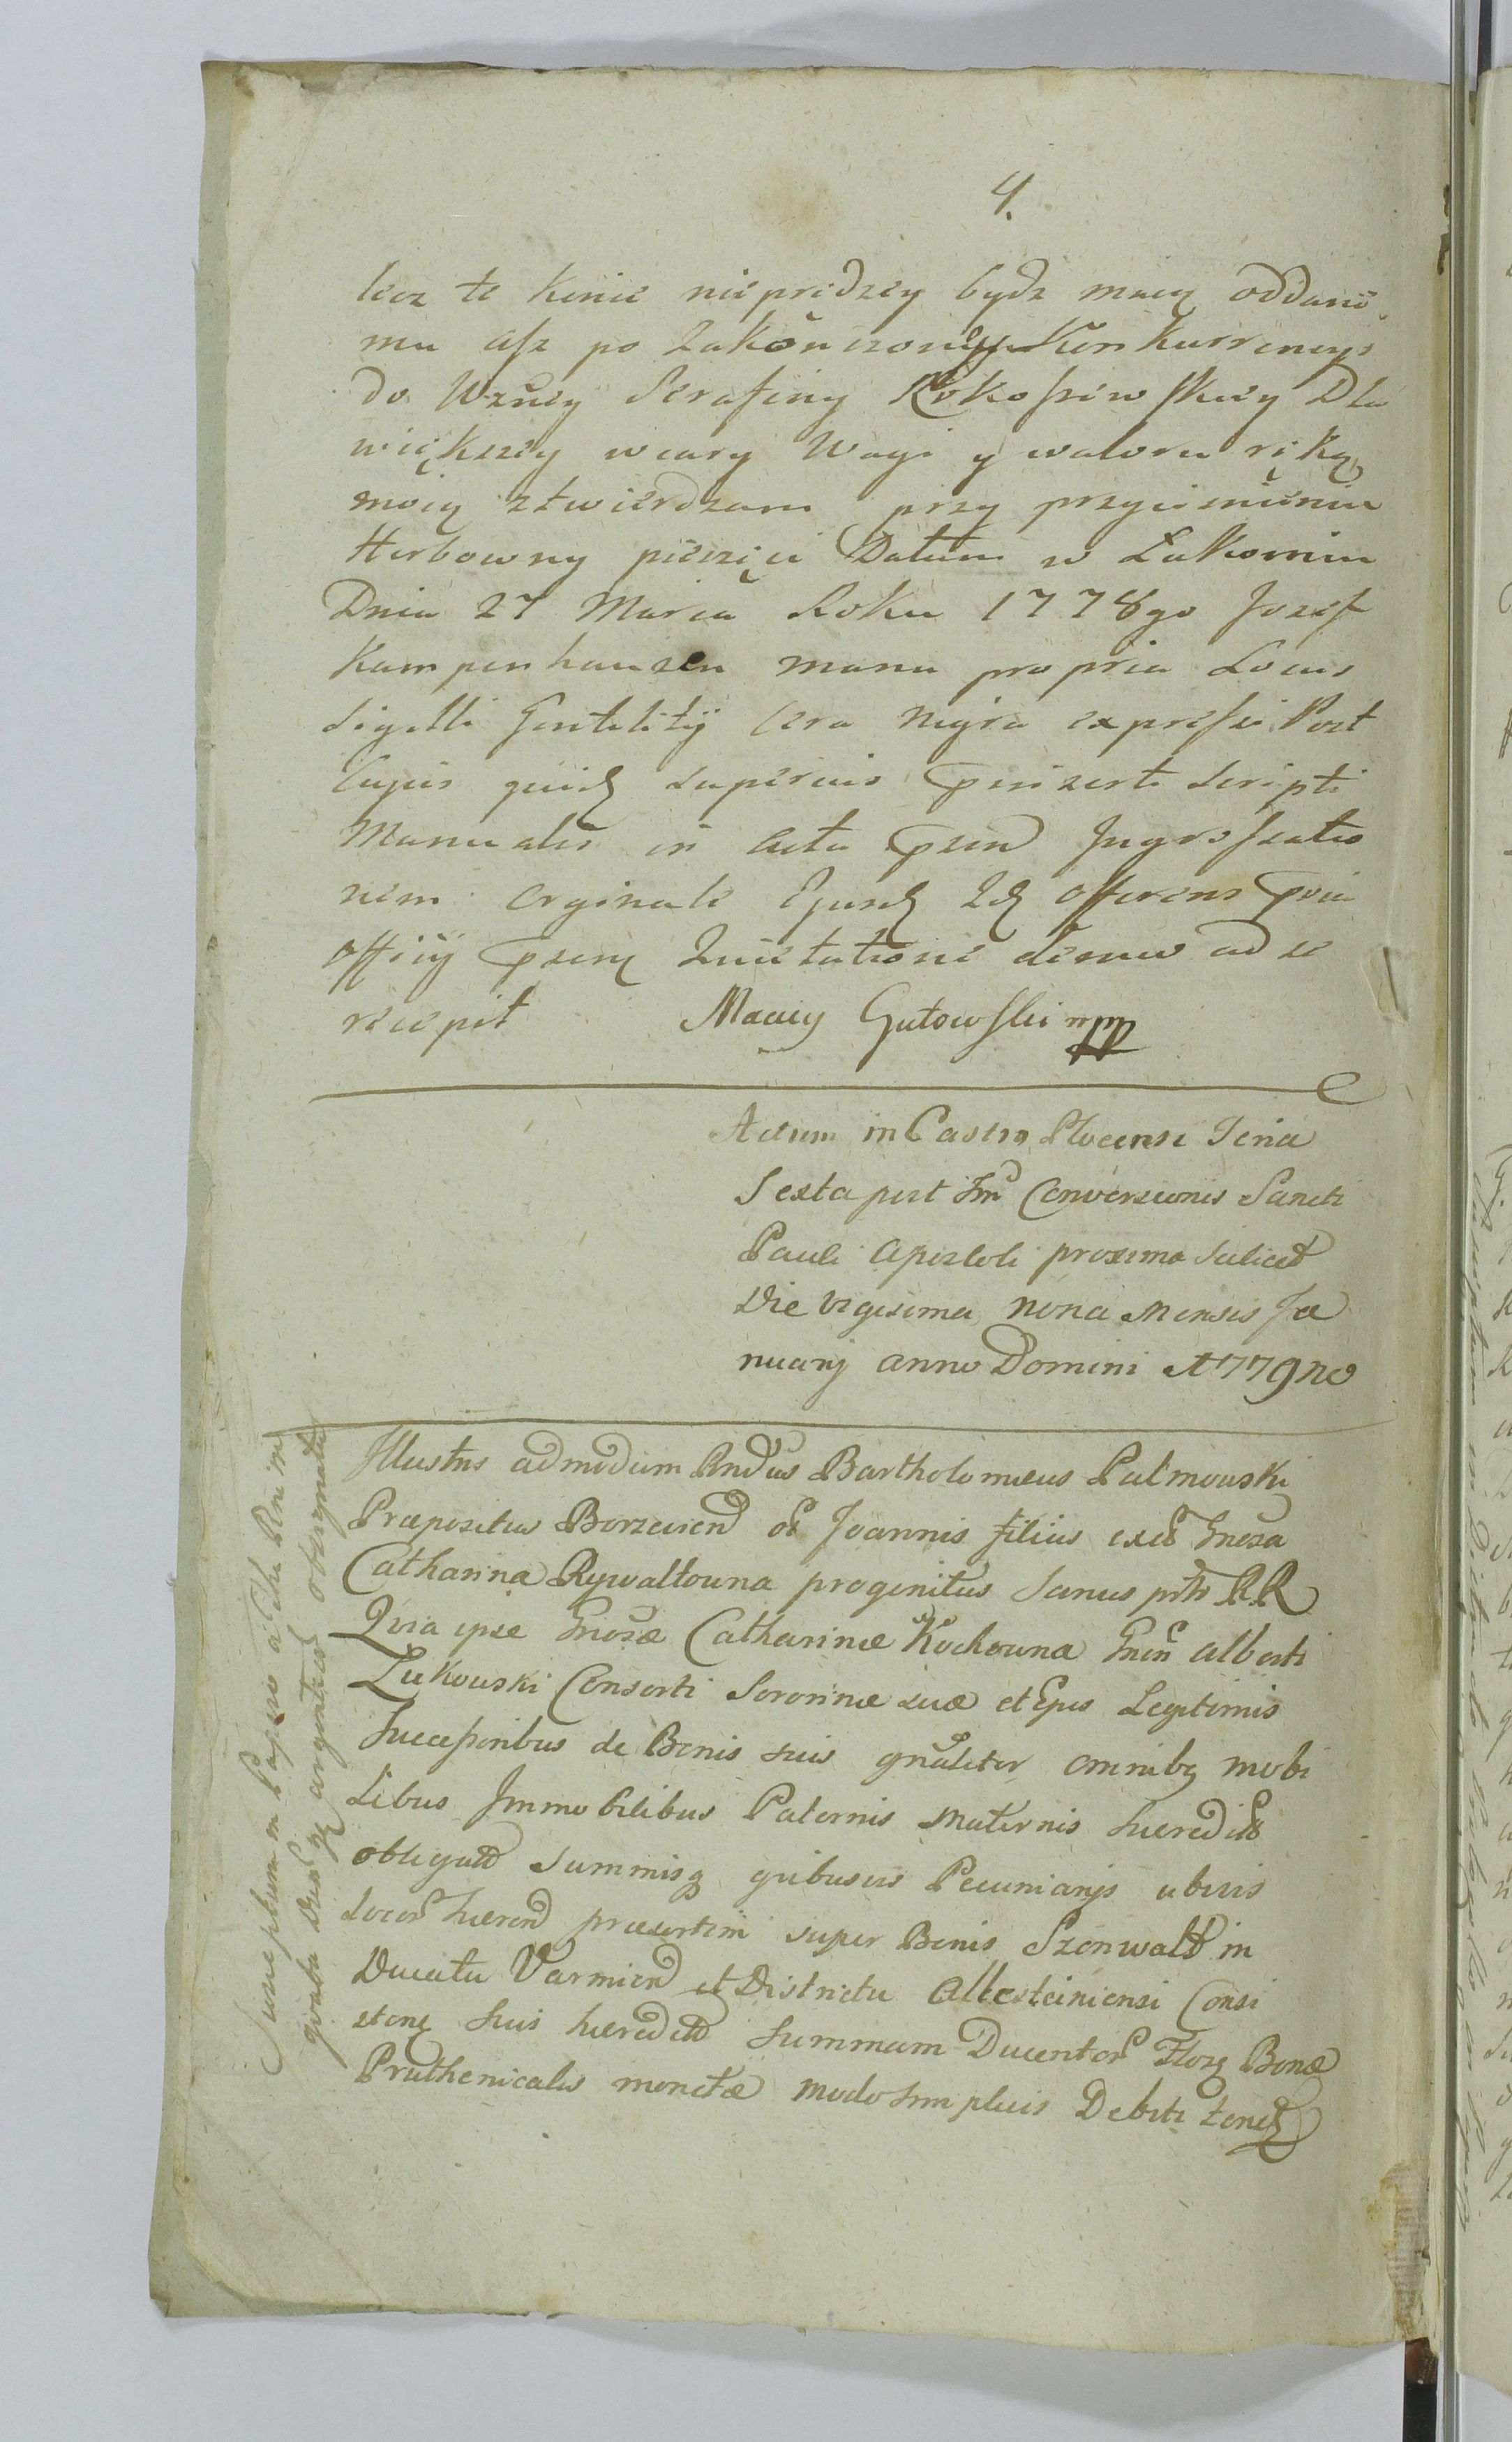 4.
lecz te Konie nieprędzey bydz maią oddane
mu asz po Zakonczoney Konkurrencyi
do Wzney Serafiny Rokossowskiey Dla
większey wiary Wagi y waloru ręką
moią ztwierdzam przy przycisnieniu
Herbowny pieczęci Datum w Łakominu
Dnia 27 Marca Roku 1778go Jozef
Kampenhauzen manu propria Locus
Sigilli Gentilitij Cera Nigra expressi Post
Cujus quid superius inserti Scripti
Manualis in Acta Ingrossatio
nem Orginale Ejusd Id Offerens
Officij Quietatione denuo ad se
recepit Maciey Gutowski mpp
Actum in Castro Plocensi Feria
Sexta post Conversionis Sancti
Pauli Apostoli proxima Scilicet
Die Vigesima nona Mensis Ja
nuarij anno Domini 1779no
Illustris admodum Rndus Bartholomeus Palmowski
Praepositus Borzewien Joannis filius exd Gnosa
Catharina Rywaltowna progenitus Sanus RR
Quia ipse Gnosae Catharinae Kochowna Gnsi Alberti
Zukowski Consorti Sororinae suae et Ejus Legitimis
Successoribus de Bonis suis gnaliter omnibq mobi
libus Immobilibus Paternis Maternis haeredit
obligatt Summisq quibusvis Pecuniarijs ubivis
Locor haeren praesertim super Bonis Szonwald in
Ducatu Varmien et Districtu Allesteiniensi Consi
sten suis haeredit Summam Ducentor Flor Bonae
Pruthenicalis monetae modo Debiti
Susceptum in Papyro a Cha
argenteos obsignata